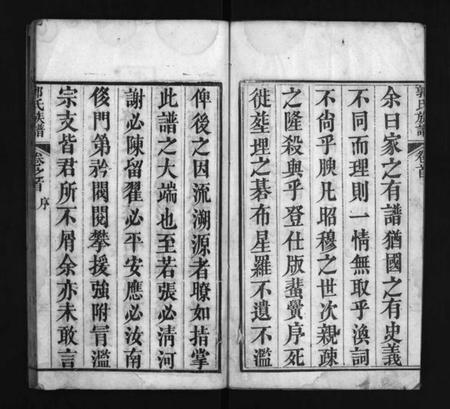 余曰家之有譜猶國之有史義
不同而理則一情無取乎渙詞
不尚乎腴凡昭穆之世次親疎
之隆殺與乎登仕版蜚黌序死
徙塋理之碁布星羅不遺不濫
俾後之因流溯源者瞭如指掌
此譜之大端也至若張必清河
謝必陳留翟必平安應必汝南
侈門第矜閥閱攀援強附冒濫
宗支皆君所不屑余亦未敢言
郭氏族譜 卷之首 序